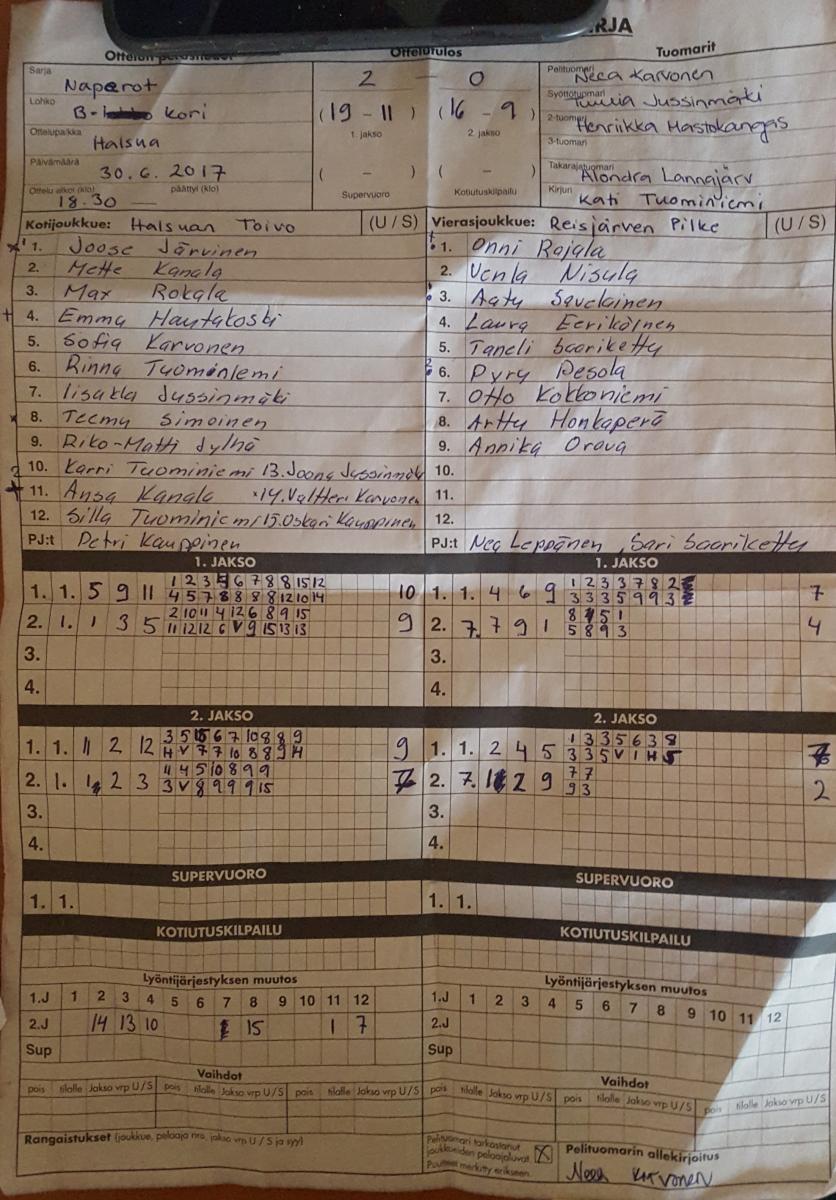 RJA
Ottelun perustiedot
Sarja Naperot
Lohko B- kori
Ottelupaikka Halsua
Päivämäärä 30.6.2017
Ottelu alkoi (klo) päättyi (klo)
18.30 —
Ottelutulos
2 - 0
(19 - 11) (16 - 9)
1. jakso 2. jakso
( - ) ( - )
Supervuoro Kotiutuskilpailu
Tuomarit
Pelituomari Neea Karvonen
Syöttötuomari Tuulia Jussinmäki
2-tuomari Henriikka Mastokangas
3-tuomari
Takarajatuomari Alondra Lannajärv
Kirjuri Kati Tuominiemi
Kotijoukkue: Halsuan Toivo (U / S)
1. Joose Järvinen
2. Mette Kanala
3. Max Rokala
4. Emma Hautakoski
5. Sofia Karvonen
6. Rinna Tuominiemi
7. Iisakki Jussinmäki
8. Teemu Simoinen
9. Riko-Matti Jylhä
10. Karri Tuominiemi 13. Joona Jussinmäki
11. Ansa Kanala 14. Valtteri Karvonen
12. Silla Tuominiemi 15. Oskari Kauppinen
PJ:t Petri Kauppinen
Vierasjoukkue: Reisjärven Pilke (U / S)
1. Onni Rajala
2. Venla Nisula
3. Aatu Savelainen
4. Laura Eerikäinen
5. Taneli Saariketty
6. Pyry Pesola
7. Otto Kokkoniemi
8. Arttu Honkaperä
9. Annika Orava
10.
11.
12.
PJ:t Nea Leppänen, Sari Saariketty
1. JAKSO
1. 1. 5 9 11 10
2. 1. 1 3 5 9
3.
4.
1. JAKSO
1. 1. 4 6 9 7
2. 7. 7 9 1 4
3.
4.
2. JAKSO
1. 1. 11 2 12 9
2. 1. 1 2 3 7
3.
4.
2. JAKSO
1. 1. 2 4 5 7
2. 7. 2 9 2
3.
4.
SUPERVUORO
1. 1.
SUPERVUORO
1. 1.
KOTIUTUSKILPAILU
KOTIUTUSKILPAILU
Lyöntijärjestyksen muutos
1.J 1 2 3 4 5 6 7 8 9 10 11 12
2.J 14 13 10 15 1 7
Sup
Lyöntijärjestyksen muutos
1.J 1 2 3 4 5 6 7 8 9 10 11 12
2.J
Sup
Vaihdot
pois tilalle Jakso vrp U / S pois tilalle Jakso vrp U / S pois tilalle Jakso vrp U / S
Vaihdot
pois tilalle Jakso vrp U / S pois tilalle Jakso vrp U / S pois tilalle Jakso vrp U / S
Rangaistukset (joukkue, pelaaja nro, jakso vrp U / S ja syy)
Pelituomari tarkastanut
joukkueiden pelaajaluvat. X
Puutteet merkitty erikseen.
Pelituomarin allekirjoitus
Neea Karvonen